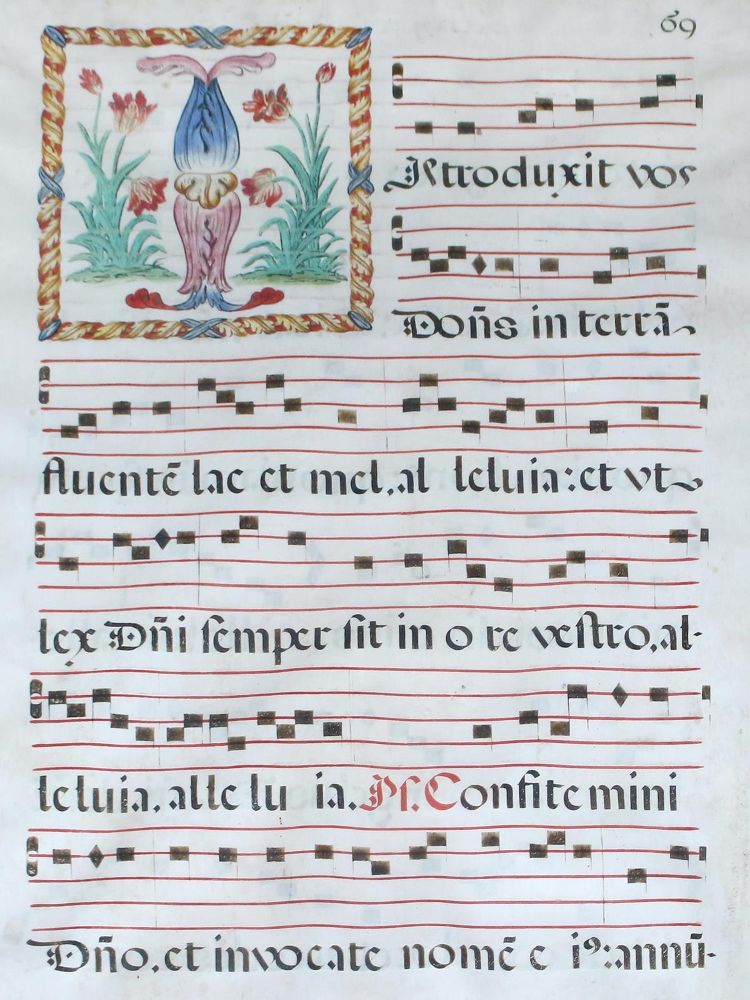 69
INtroduxit vos
Dom̄s in terrā
fluentē lac et mel, al leluia: et vt
lex Dn̄i semper sit in o re vestro, al-
leluia, alle lu ia. Ps. Confite mini
Dn̄o, et invocate nomē e iꝰ: annū-